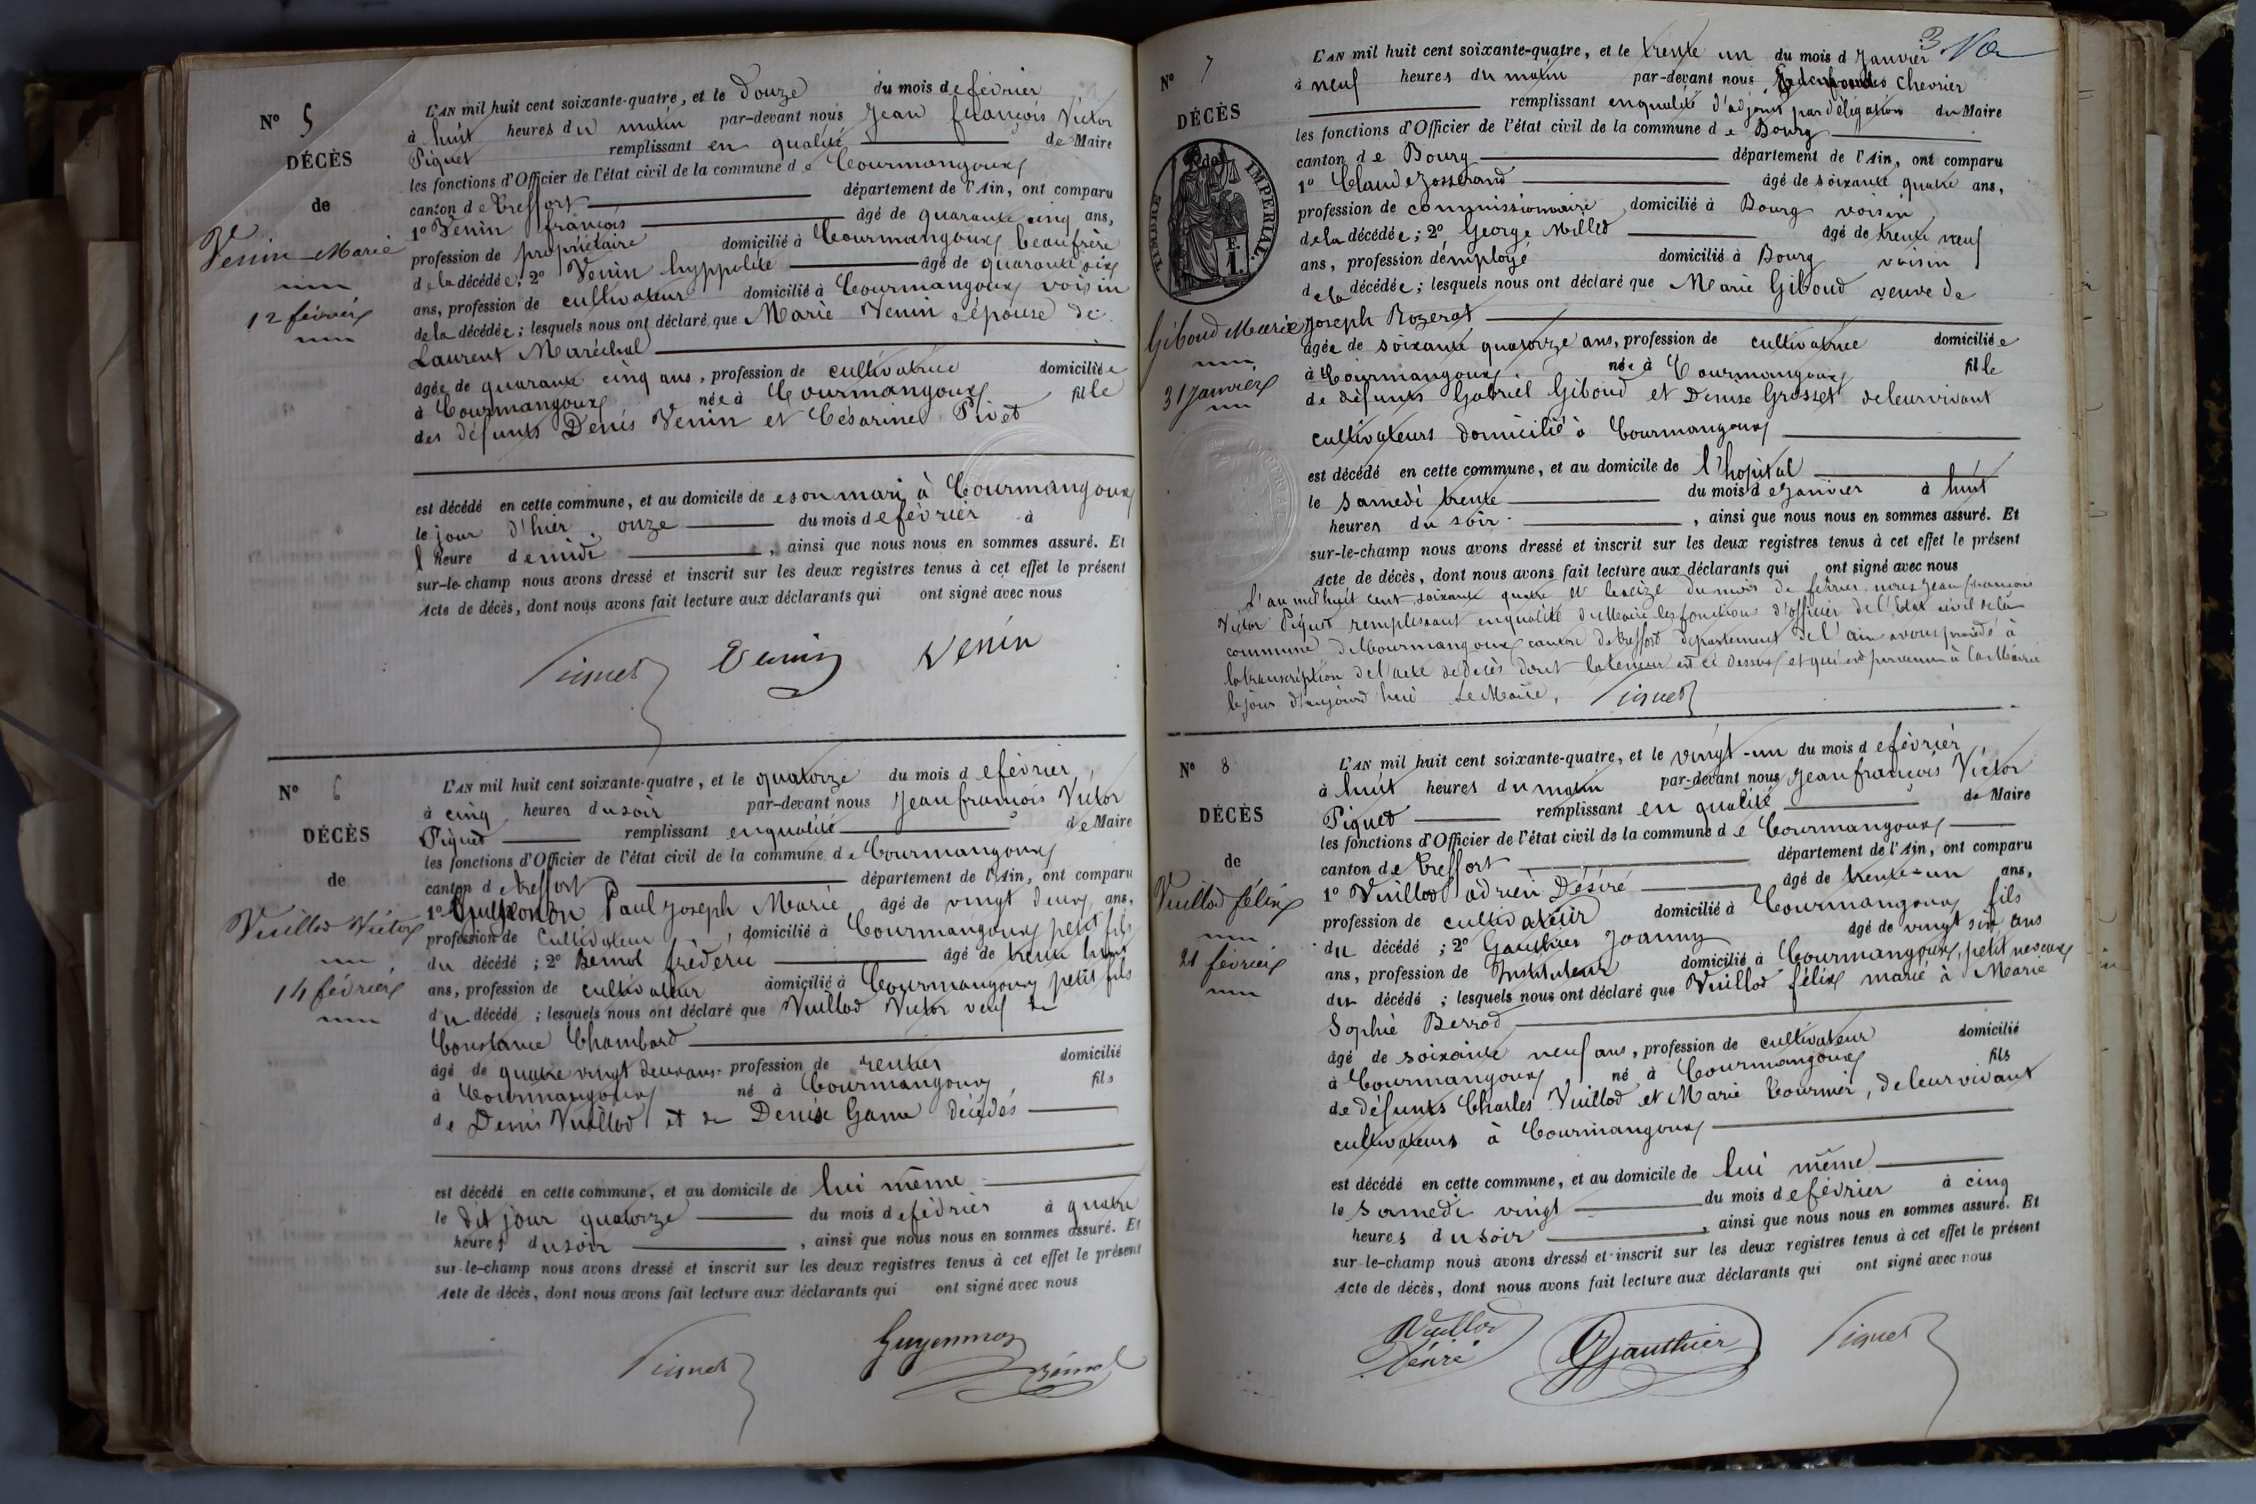 N° 5
DÉCÈS
de
Venin Marie
12 février
L'AN mil huit cent soixante-quatre, et le Douze du mois de février
à huit heures du matin par-devant nous Jean françois Victor
Piquet remplissant en qualité de Maire
les fonctions d'Officier de l'état civil de la commune de Courmangoux
canton de Treffort département de l'Ain, ont comparu
1° Venin françois âgé de quarante cinq ans,
profession de propriétaire domicilié à Courmangoux beaufrère
de la décédée; 2° Venin hyppolite âgé de quarante six
ans, profession de cultivateur domicilié à Courmangoux voisin
de la décédée; lesquels nous ont déclaré que Marie Venin épouse de
Laurent Maréchal
âgée de quarante cinq ans, profession de cultivatrice domiciliée
à Courmangoux née à Courmangoux fille
des défunts Denis Venin et Césarine Pivet
est décédé en cette commune, et au domicile de son mari à Courmangoux
le jour d'hier onze du mois de février à
l heure de midi , ainsi que nous nous en sommes assuré. Et
sur-le-champ nous avons dressé et inscrit sur les deux registres tenus à cet effet le présent
Acte de décès, dont nous avons fait lecture aux déclarants qui ont signé avec nous
Piquet Venin Venin
N° 6
DÉCÈS
de
Vuillod Victor
14 février
L'AN mil huit cent soixante-quatre, et le quatorze du mois de février
à cinq heures du soir par-devant nous Jean françois Victor
Piquet remplissant en qualité de Maire
les fonctions d'Officier de l'état civil de la commune de Courmangoux
canton de treffort département de l'Ain, ont comparu
1° Paul Joseph Marie âgé de vingt deux ans,
profession de Cultivateur , domicilié à Courmangoux petit fils
du décédé ; 2° Bernol fréderic âgé de trente
ans, profession de cultivateur domicilié à Courmangoux petit fils
du décédé ; lesquels nous ont déclaré que Vuillod Victor veuf de
Constance Chambard
âgé de quatre vingt deux ans, profession de rentier domicilié
à Courmangoux né à Courmangoux fils
de Denis Vuillod et de Denise Game décédés
est décédé en cette commune, et au domicile de lui même
le dit jour quatorze du mois de février à quatre
heures du soir , ainsi que nous nous en sommes assuré. Et
sur-le-champ nous avons dressé et inscrit sur les deux registres tenus à cet effet le présent
Acte de décès, dont nous avons fait lecture aux déclarants qui ont signé avec nous
Piquet Guyennon Bernol
3
N° 7
DÉCÈS
TIMBRE IMPÉRIAL
F. 1.
Giboud Marie
31 Janvier
L'AN mil huit cent soixante-quatre, et le trente un du mois d Janvier
à neuf heures du matin par-devant nous Chevrier
remplissant en qualité d'adjoint par délégation du Maire
les fonctions d'Officier de l'état civil de la commune de Bourg
canton de Bourg département de l'Ain, ont comparu
1° Claude Josserand âgé de soixante quatre ans,
profession de commissionnaire domicilié à Bourg voisin
de la décédée; 2° George Millet âgé de trente neuf
ans, profession d'employé domicilié à Bourg voisin
de la décédée; lesquels nous ont déclaré que Marie Giboud veuve de
Joseph Rozerat
âgée de soixante quatorze ans, profession de cultivatrice domiciliée
à Courmangoux née à Courmangoux fille
de défunts Gabriel Giboud et Denise Grosset de leur vivant
cultivateurs domicilié à Courmangoux
est décédé en cette commune, et au domicile de l'hopital
le samedi trente du mois de Janvier à huit
heures du soir , ainsi que nous nous en sommes assuré. Et
sur-le-champ nous avons dressé et inscrit sur les deux registres tenus à cet effet le présent
Acte de décès, dont nous avons fait lecture aux déclarants qui ont signé avec nous
L'an mil huit cent soixante quatre et le seize du mois de février nous Jean françois
Victor Piquet remplissant en qualité de Maire les fonctions d'officier de l'état civil de la
commune de Courmangoux canton de treffort departement de l'ain avons procédé à
la transcription de l'acte de decès dont la teneur est ci dessus et qui est parvenu à la Mairie
le jour d'aujourd'hui Le Maire, Piquet
N° 8
DÉCÈS
de
Vuillod félix
21 février
L'AN mil huit cent soixante-quatre, et le vingt-un du mois de février
à huit heures du matin par-devant nous Jean françois Victor
Piquet remplissant en qualité de Maire
les fonctions d'Officier de l'état civil de la commune de Courmangoux
canton de treffort département de l'Ain, ont comparu
1° Vuillod adrien Désiré âgé de trente-un ans,
profession de cultivateur domicilié à Courmangoux fils
du décédé ; 2° Gauthier Joanny âgé de vingt six ans
ans, profession de Instituteur domicilié à Courmangoux, petit neveux
du décédé ; lesquels nous ont déclaré que Vuillod félix marié à Marie
Sophie Berrod
âgé de soixante neuf ans, profession de cultivateur domicilié
à Courmangoux né à Courmangoux fils
de défunts Charles Vuillod et Marie Tournier, de leur vivant
cultivateurs à Courmangoux
est décédé en cette commune, et au domicile de lui même
le samedi vingt du mois de février à cinq
heures du soir , ainsi que nous nous en sommes assuré. Et
sur-le-champ nous avons dressé et inscrit sur les deux registres tenus à cet effet le présent
Acte de décès, dont nous avons fait lecture aux déclarants qui ont signé avec nous
Vuillod Gauthier Piquet
Désiré